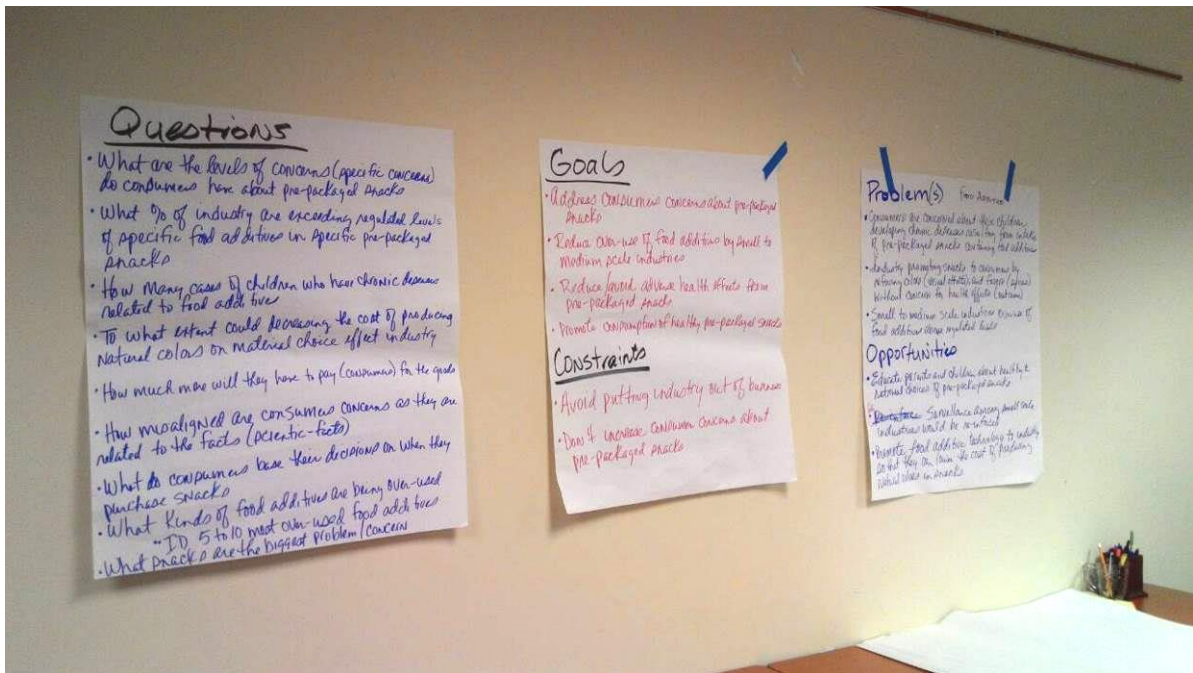 Questions
• What are the levels of concerns (specific concerns)
do consumers have about pre-packaged snacks
• What % of industry are exceeding regulated levels
of specific food additives in specific pre-packaged
snacks
• How many cases of children who have chronic diseases
related to food additives
• To what extent could decreasing the cost of producing
natural colors on material choice effect industry
• How much more will they have to pay (consumers) for the goods
• How misaligned are consumers concerns as they are
related to the facts (scientic-facts)
• What do consumers base their decisions on when they
purchase snacks
• What kinds of food additives are being over-used
"ID 5 to 10 most over-used food additives
• What snacks are the biggest problem/concern
Goals
• Address consumers concerns about pre-packaged
snacks
• Reduce over-use of food additives by small to
medium scale industries
• Reduce/avoid adverse health effects from
pre-packaged snacks
• Promote consumption of healthy pre-packaged snacks
Constraints
• Avoid putting industry out of business
• Don't increase consumer concerns about
pre-packaged snacks
Problem(s) Food Additives
• Consumers are concerned about their children
developing chronic diseases resulting from intake
of pre-packaged snacks containing food additives
• Industry promoting snacks to consumers by
colors (visual effects), and
without concern for health effects
• Small to medium scale industries over-use of
food additives above regulated levels
Opportunities
• Educate parents and children about healthy &
choices of pre-packaged snacks
• Surveillance among small scale
industries would be
• Promote food additive technology to industry
so that they can lower the cost of producing
natural colors in snacks